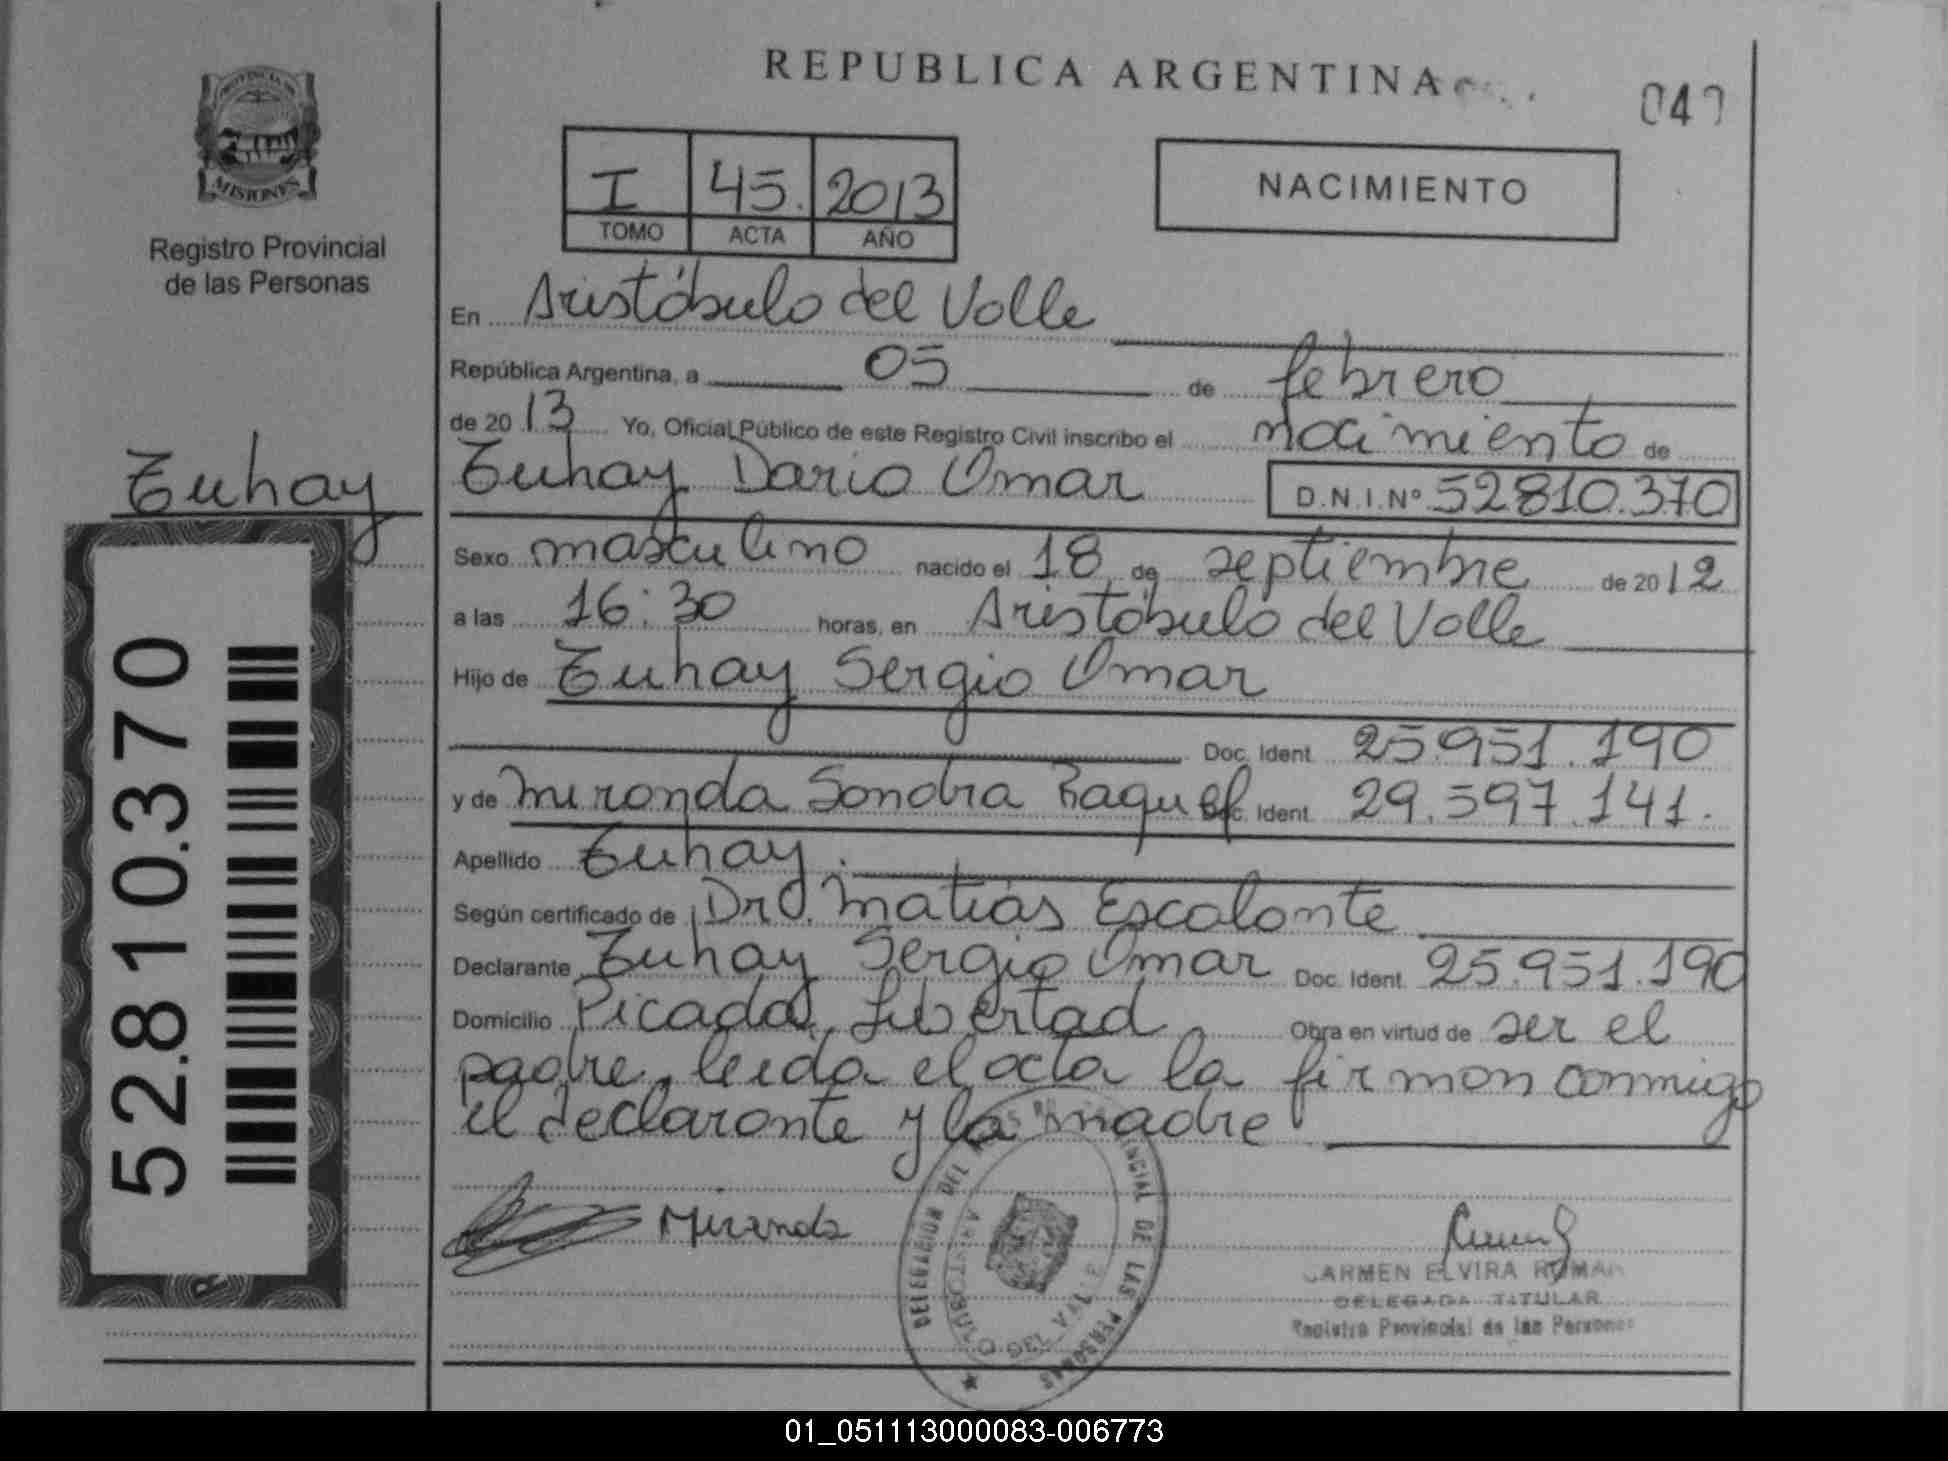 REPUBLICA ARGENTINA
040
PROVINCIA DE
MISIONES
Registro Provincial
de las Personas
I 45. 2013
TOMO ACTA AÑO
NACIMIENTO
En Aristóbulo del Valle
República Argentina, a 05 de febrero
de 2013 Yo, Oficial Público de este Registro Civil inscribo el nacimiento de
Tuhay
Tuhay Dario Omar D.N.I.Nº 52810.370
Sexo masculino nacido el 18 de septiembre de 2012
a las 16:30 horas, en Aristóbulo del Valle
Hijo de Tuhay Sergio Omar
Doc. Ident. 25.951.190
y de Miranda Sandra Raquel Doc. Ident. 29.597.141.
Apellido Tuhay.
Según certificado de Dro. Matias Escalante
Declarante Tuhay Sergio Omar Doc. Ident. 25.951.190
Domicilio Picada Libertad, Obra en virtud de ser el
padre, leida el acta la firman conmigo
el declarante y la madre
Miranda
DELEGACION DEL PROVINCIAL DE LAS PERSONAS
ARISTOBULO DEL VALLE
CARMEN ELVIRA ROMAN
DELEGADA TITULAR
Registro Provincial de las Personas
52.810.370
R
01_051113000083-006773